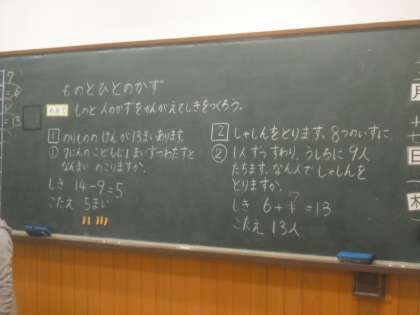 ものとひとのかず
めあて ものと人のかずをかんがえてしきをつくろう。
1 のりものの けんが13まいあります
① 7にんの こどもに1まいずつわたすと
なんまい のこりますか。
しき 14-9=5
こたえ 5まい
2 しゃしんをとります。8つのいすに
② 1人ずつすわり、うしろに9人
たちます。なん人でしゃしんを
とりますか。
しき 6+7=13
こたえ 13人
7
=13
月
日